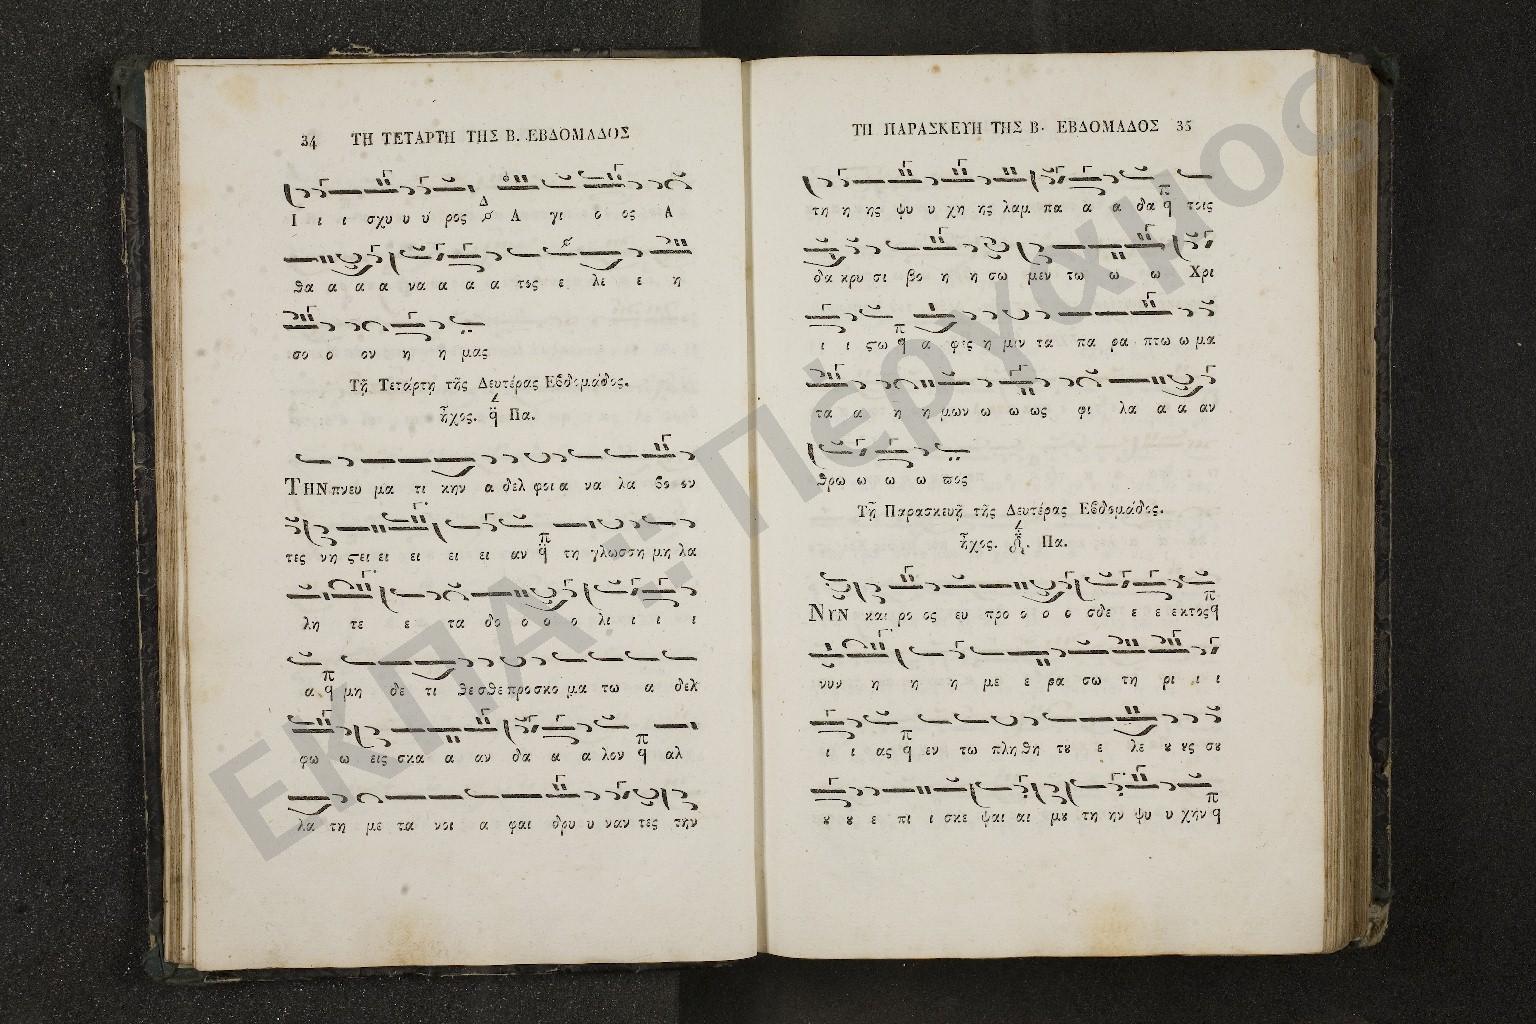 34 ΤΗ ΤΕΤΑΡΤΗ ΤΗΣ Β. ΕΒΔΟΜΑΔΟΣ
Ι ι ι σχυ υ υ ρος Δ Α γι ο ος Α
θα α α α να α α α τος ε λε ε η
σο ο ον η η μας
Τῇ Τετάρτῃ τῆς Δευτέρας Εβδομάδος.
ἦχος. q Πα.
ΤΗΝ πνευ μα τι κην α δελ φοι α να λα βο ον
τες νη ϛει ει ει ει ει αν π q τη γλωσση μη λα
λη τε ε τα δο ο ο ο λι ι ι ι
α π q μη δε τι θεσθε προσκο μα τω α δελ
φω ω εις σκα α αν δα α α λον π q αλ
λα τη με τα νοι α φαι δρυ υ ναν τες την
ΤΗ ΠΑΡΑΣΚΕΥΗ ΤΗΣ Β. ΕΒΔΟΜΑΔΟΣ 35
τη η ης ψυ υ χη ης λαμ πα α α δα π q τοις
δα κρυ σι βο η η σω μεν τω ω ω Χρι
ι ι ϛω π q α φες η μιν τα πα ρα πτω ω μα
τα α η η μων ω ω ως φι λα α α αν
θρω ω ω ω πος
Τῇ Παρασκευῇ τῆς Δευτέρας Εβδομάδος.
ἦχος. Πα.
ΝΥΝ και ρο ος ευ προ ο ο ο σδε ε ε εκτος π q
νυν η η η με ε ρα σω τη ρι ι ι
ι ι ας π q εν τω πληθη τȣ ε λε ȣ ȣς σȣ
ȣ ȣ ε πι ι σκε ψαι αι μȣ τη ην ψυ υ χην π q
ΕΚΠΑ :: Πέργαμος